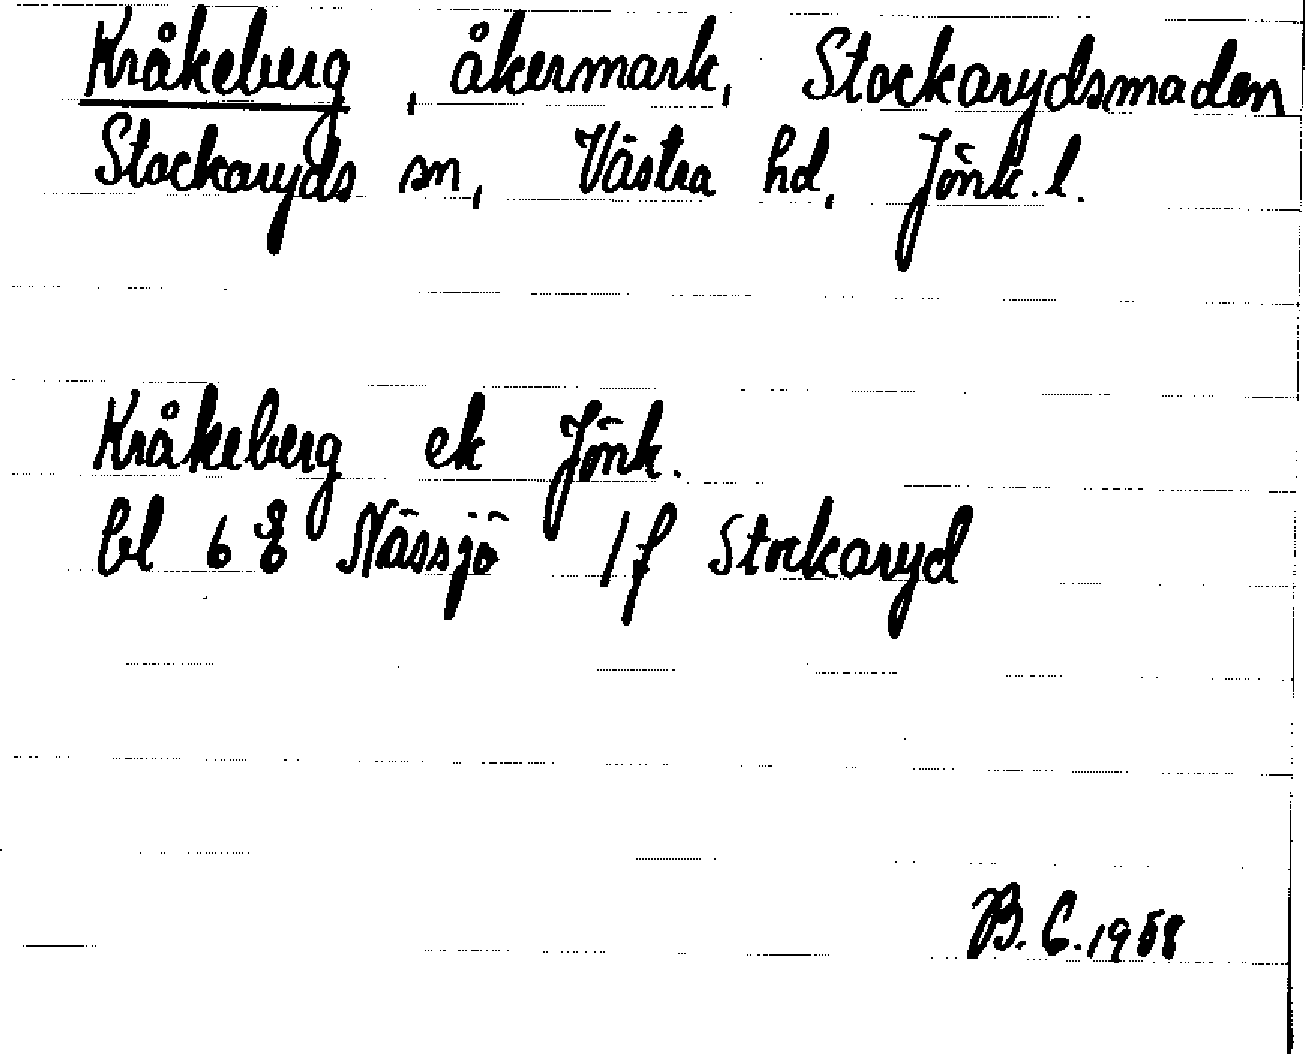 Kråkeberg, åkermark, Stockarydsmaden
Stockaryds sn, Västra hd, Jönk. l.
Kråkeberg ek Jönk.
bl 6 E Nässjö 1 f Stockaryd
B. C. 1958